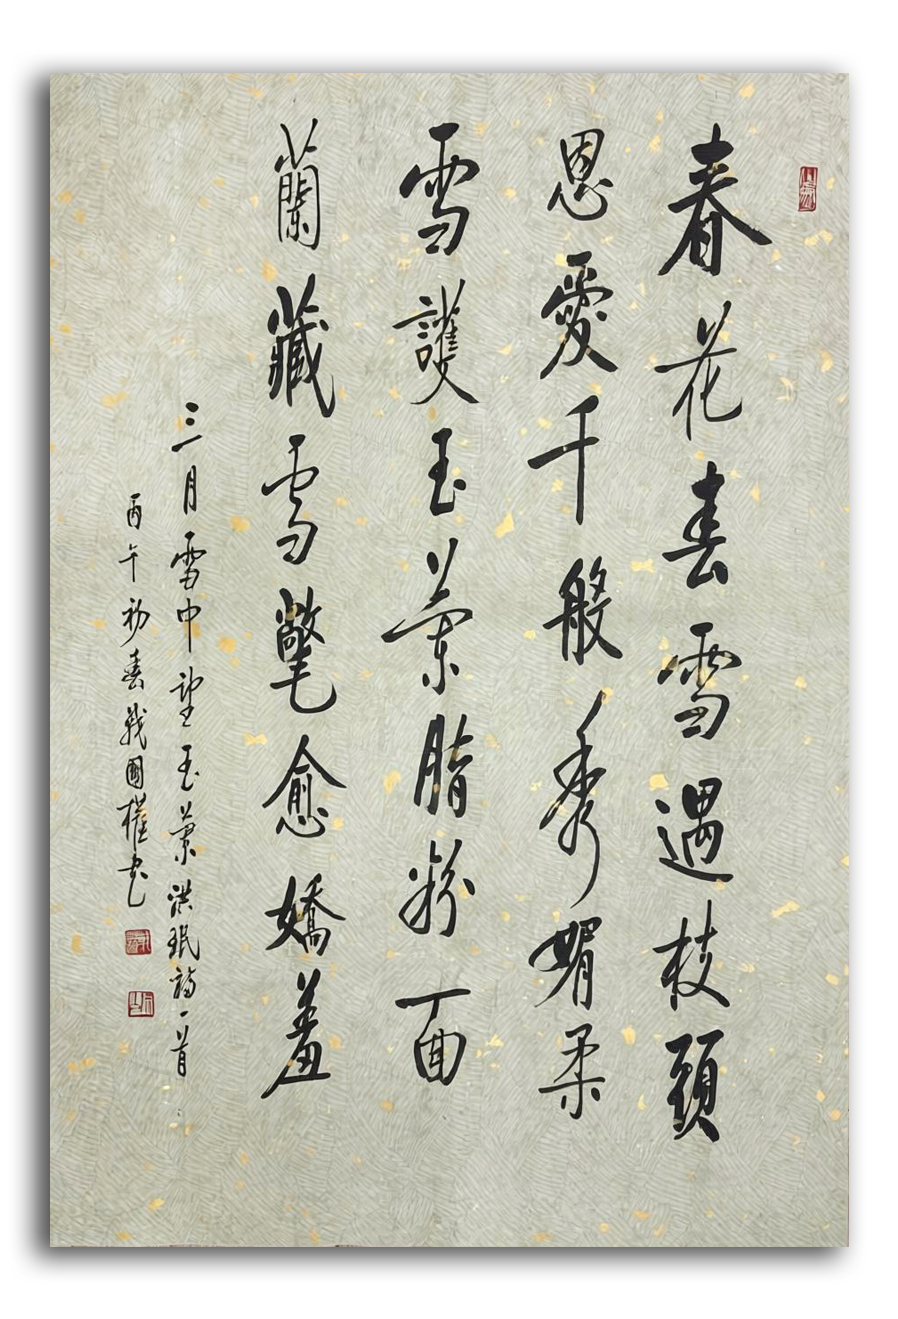 春花春雪遇枝頭
恩愛千般秀媚柔
雪護玉蘭脂粉面
蘭藏雪氅愈嬌羞
三月雪中望玉蘭洪珉詩一首
丙午初春戰國權书